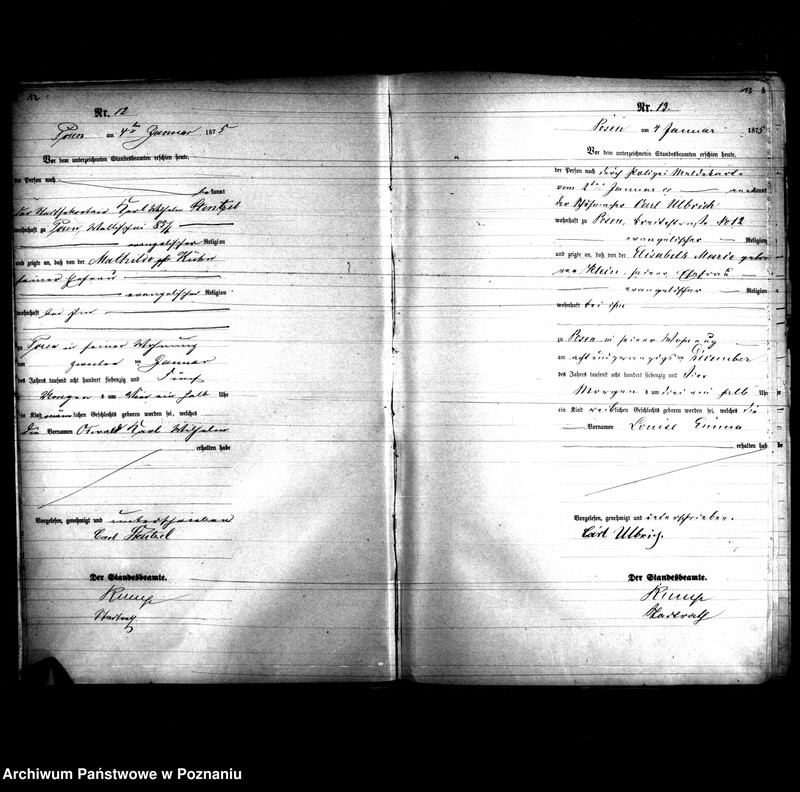 12
Nr. 12
Posen am 4ten Januar 1875
Vor dem unterzeichneten Standesbeamten erschien heute,
der Person nach
bekannt
der Karl Wilhelm
wohnhaft zu Posen, Wallischei
evangelischer Religion
und zeigte an, daß von der Mathilde geb
seiner Ehefrau
evangelischer Religion
wohnhaft bei ihm
zu Posen in seiner Wohnung
am zweiten ten Januar
des Jahres tausend acht hundert siebenzig und fünf
Morgens um vier ein halb Uhr
ein Kind männlichen Geschlechts geboren worden sei, welches
die Vornamen Oswald Karl Wilhelm
erhalten habe
Vorgelesen, genehmigt und unterschrieben
Carl
Der Standesbeamte.
Rump
Stadtrath
13
Nr. 13.
Posen am 4 Januar 1875
Vor dem unterzeichneten Standesbeamten erschien heute,
der Person nach durch Polizei Meldekarte
vom 2ten Januar cr anerkannt
der Carl Ulbrich
wohnhaft zu Posen, Breitestraße No 12
evangelischer Religion
und zeigte an, daß von der Elisabeth Marie gebor
nen Klein seiner Ehefrau
evangelischer Religion
wohnhaft bei ihm
zu Posen in seiner Wohnung
am acht und zwanzigsten Dezember
des Jahres tausend acht hundert siebenzig und vier
Morgens um drei ein halb Uhr
ein Kind weiblichen Geschlechts geboren worden sei, welches die
Vornamen Louise Emma
erhalten hab
Vorgelesen, genehmigt und unterschrieben.
Carl Ulbrich.
Der Standesbeamte.
Rump
Stadtrath
Archiwum Państwowe w Poznaniu